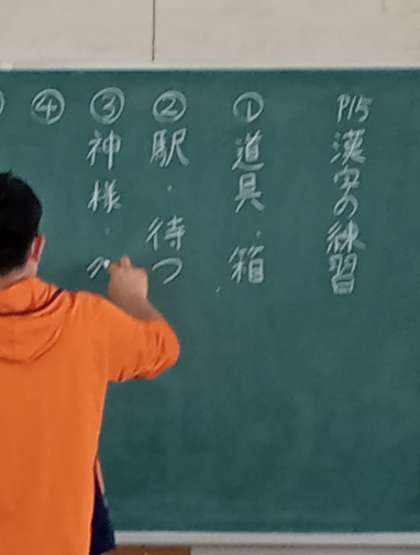 P15 漢字の練習
① 道具・箱
② 駅・待つ
③ 神様・
④